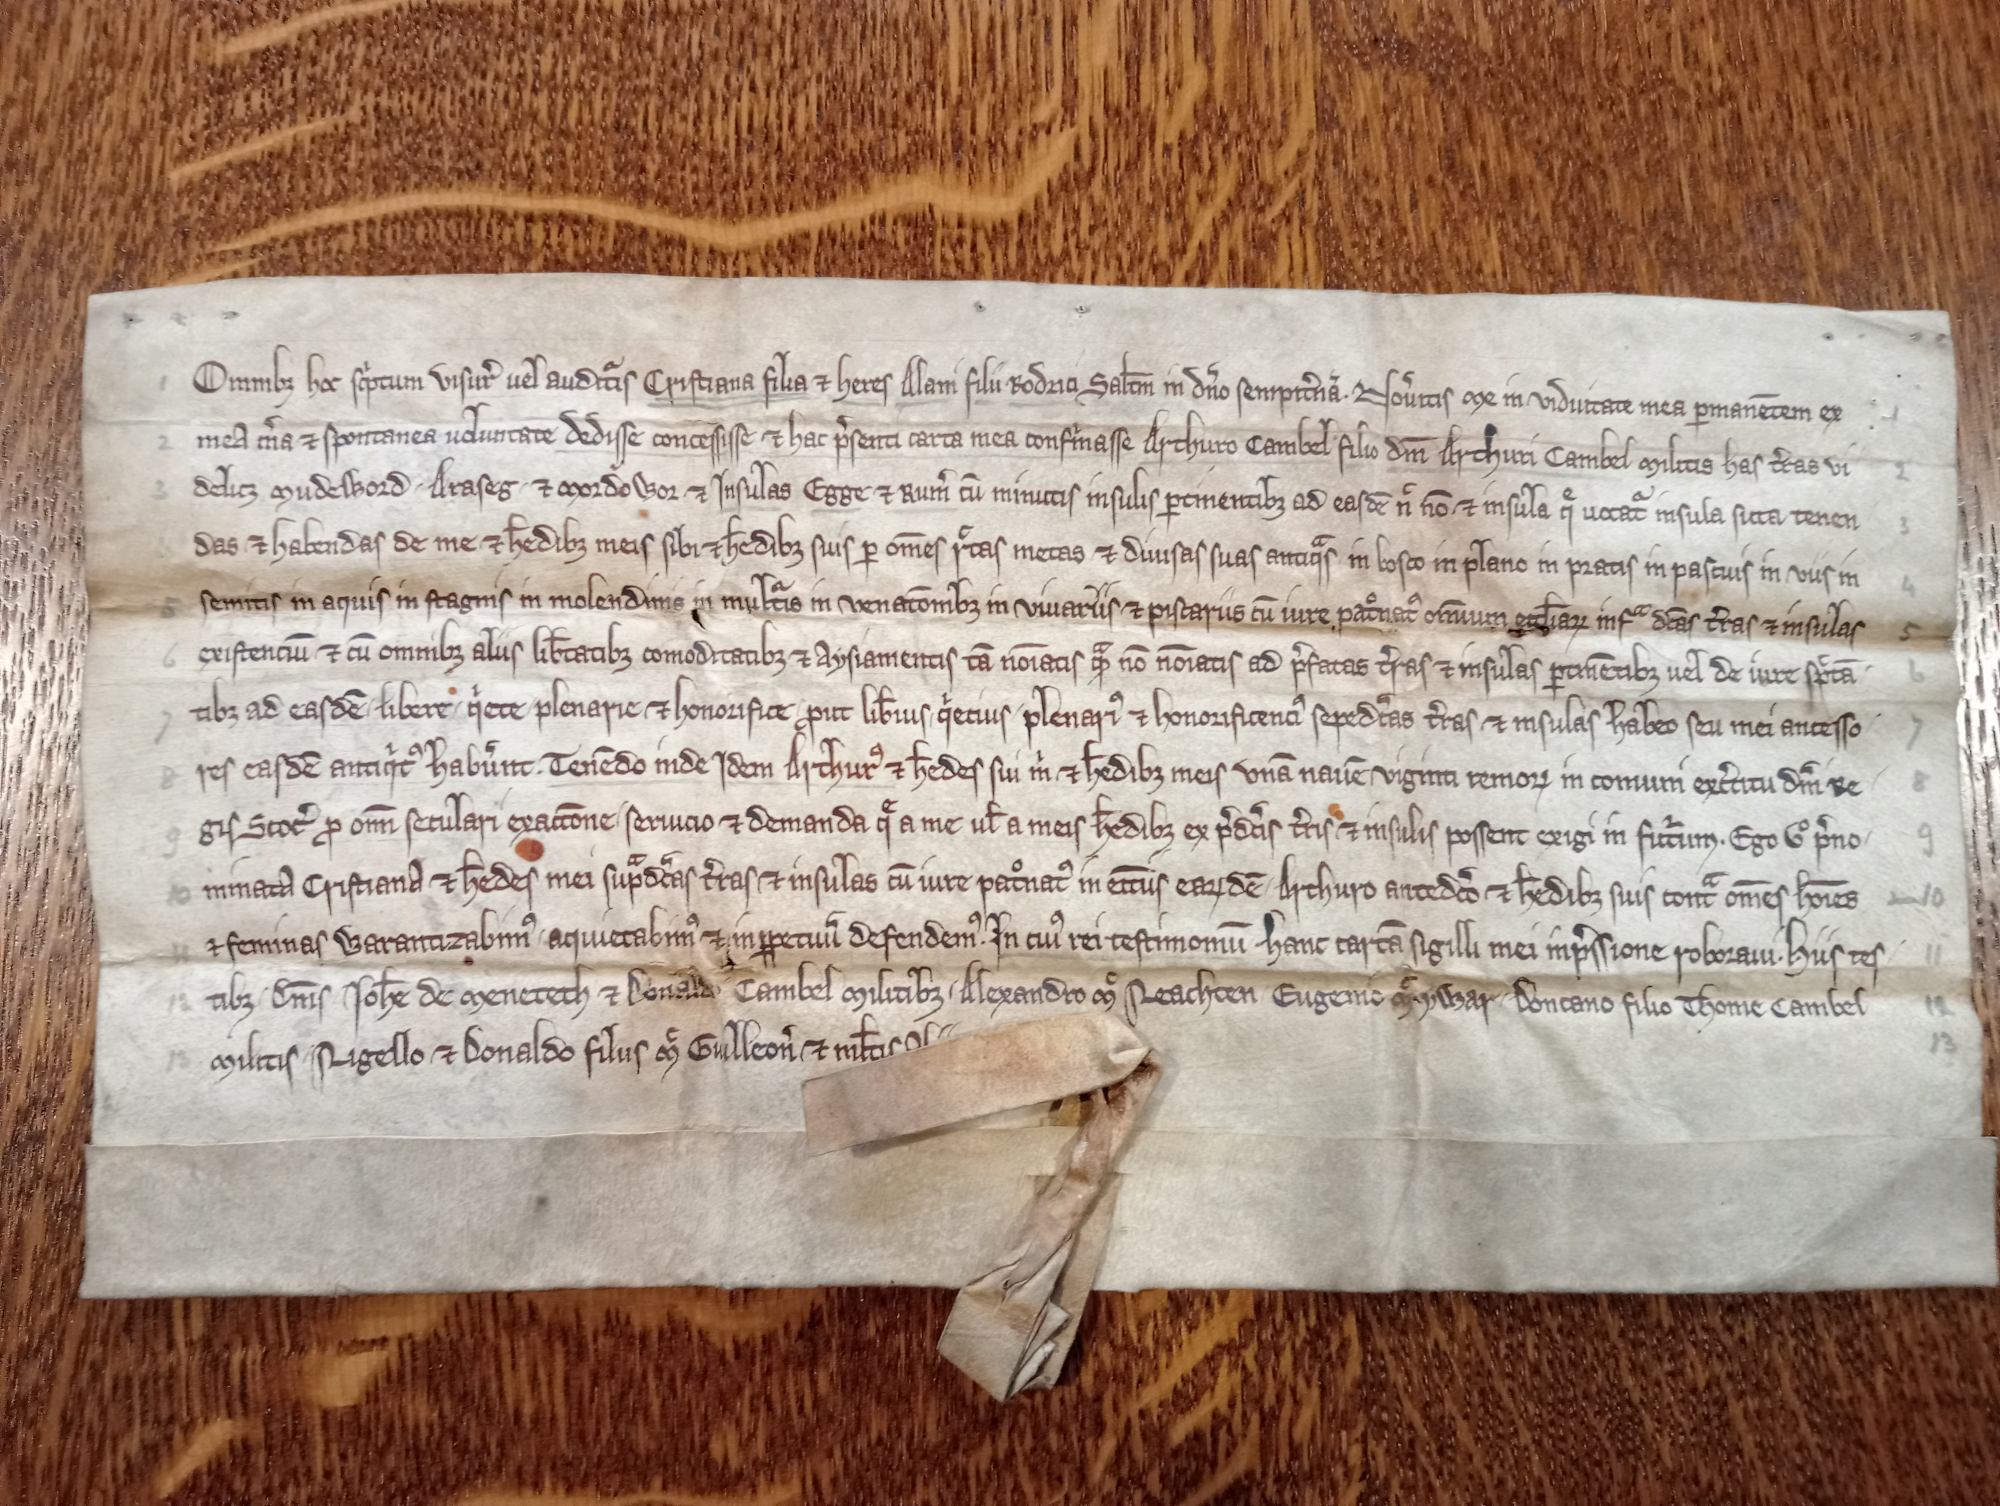 Omnibȝ hoc sc'ptum visur' uel auditur's Cristiana filia ⁊ heres Alani filii Rodrici Salt̄m in dn̄o sempit'nā. Nou'itis me in viduitate mea p̱manētem ex
mea m'a ⁊ spontanea uoluntate dedisse concessisse ⁊ hac p'senti carta mea confir'masse Arthuro Cambel filio dn̄i Arthuri Cambel militis has t'ras vi
delicȝ Mudeword · Araseg · ⁊ Mordowor · ⁊ Insulas Egge ⁊ Rum' cū minutis insulis p̱tinentibȝ ad easdē n' nō ⁊ insula q' uocat' insula sicca tenen
das ⁊ habendas de me ⁊ h̄edibȝ meis sibi ⁊ h̄edibȝ suis p̱ om̄es r'tas metas ⁊ diuisas suas antiq's in bosco in plano in pratis in pascuis in viis in
semitis in aquis in stagnis in molendinis in mult'is in venac̄onibȝ in viuariis ⁊ piscariis cū iure pat'onat' om̄ium eccl̄iarꝝ infra dc̄as t'ras ⁊ insulas
existenciū ⁊ cū omnibȝ aliis lib̄tatibȝ comoditatibȝ ⁊ Aysiamentis tā nōiatis q̄ nō nōiatis ad p'fatas t'ras ⁊ insulas p̱tinētibȝ uel de iure sp'ctā
tibȝ ad easdē · libere · q'ete · plenarie · ⁊ honorifice · ꝓut lib̄ius · q'ecius · plenari' ⁊ honorificenci' sepedc̄as t'ras · ⁊ insulas habeo seu mei ancesso
res easdē antiq't' habūr̄nt. Tenēdo inde Idem Arthur' ⁊ h̄edes sui m' ⁊ h̄edibȝ meis vnā nauē viginti remorꝝ in comuni ex'citu dn̄i Re
gis Scoc' ꝓ om̄i seculari exacc̄one seruicio ⁊ demanda q' a me ul̄ a meis h̄edibȝ ex p'dc̄is t'ris ⁊ insulis possent exigi in futur'um. Ego v° p'no
minata Cristiana ⁊ h̄edes mei sup'dc̄as t'ras ⁊ insulas cū iure pat'onat' in ecc̄iis earꝝdē · Arthuro antedc̄o ⁊ h̄edibȝ suis contra om̄es hōies
⁊ feminas warantizabim' · aquietabim' ⁊ inp̱petuū defendem'. In cui' rei testimoniū hanc cartā sigilli mei inp'ssione roboraui. Hiis tes
tibȝ · Dn̄is Joh̄e de Meneteth ⁊ Donaldo Cambel militibȝ · Alexandro m' Neachten · Eugenio m' ywar · Doncano filio Thome Cambel
militis · Nigello ⁊ Donaldo filiis m' Gilleon' ⁊ mltis
1
2
3
4
5
6
7
8
9
10
11
12
13